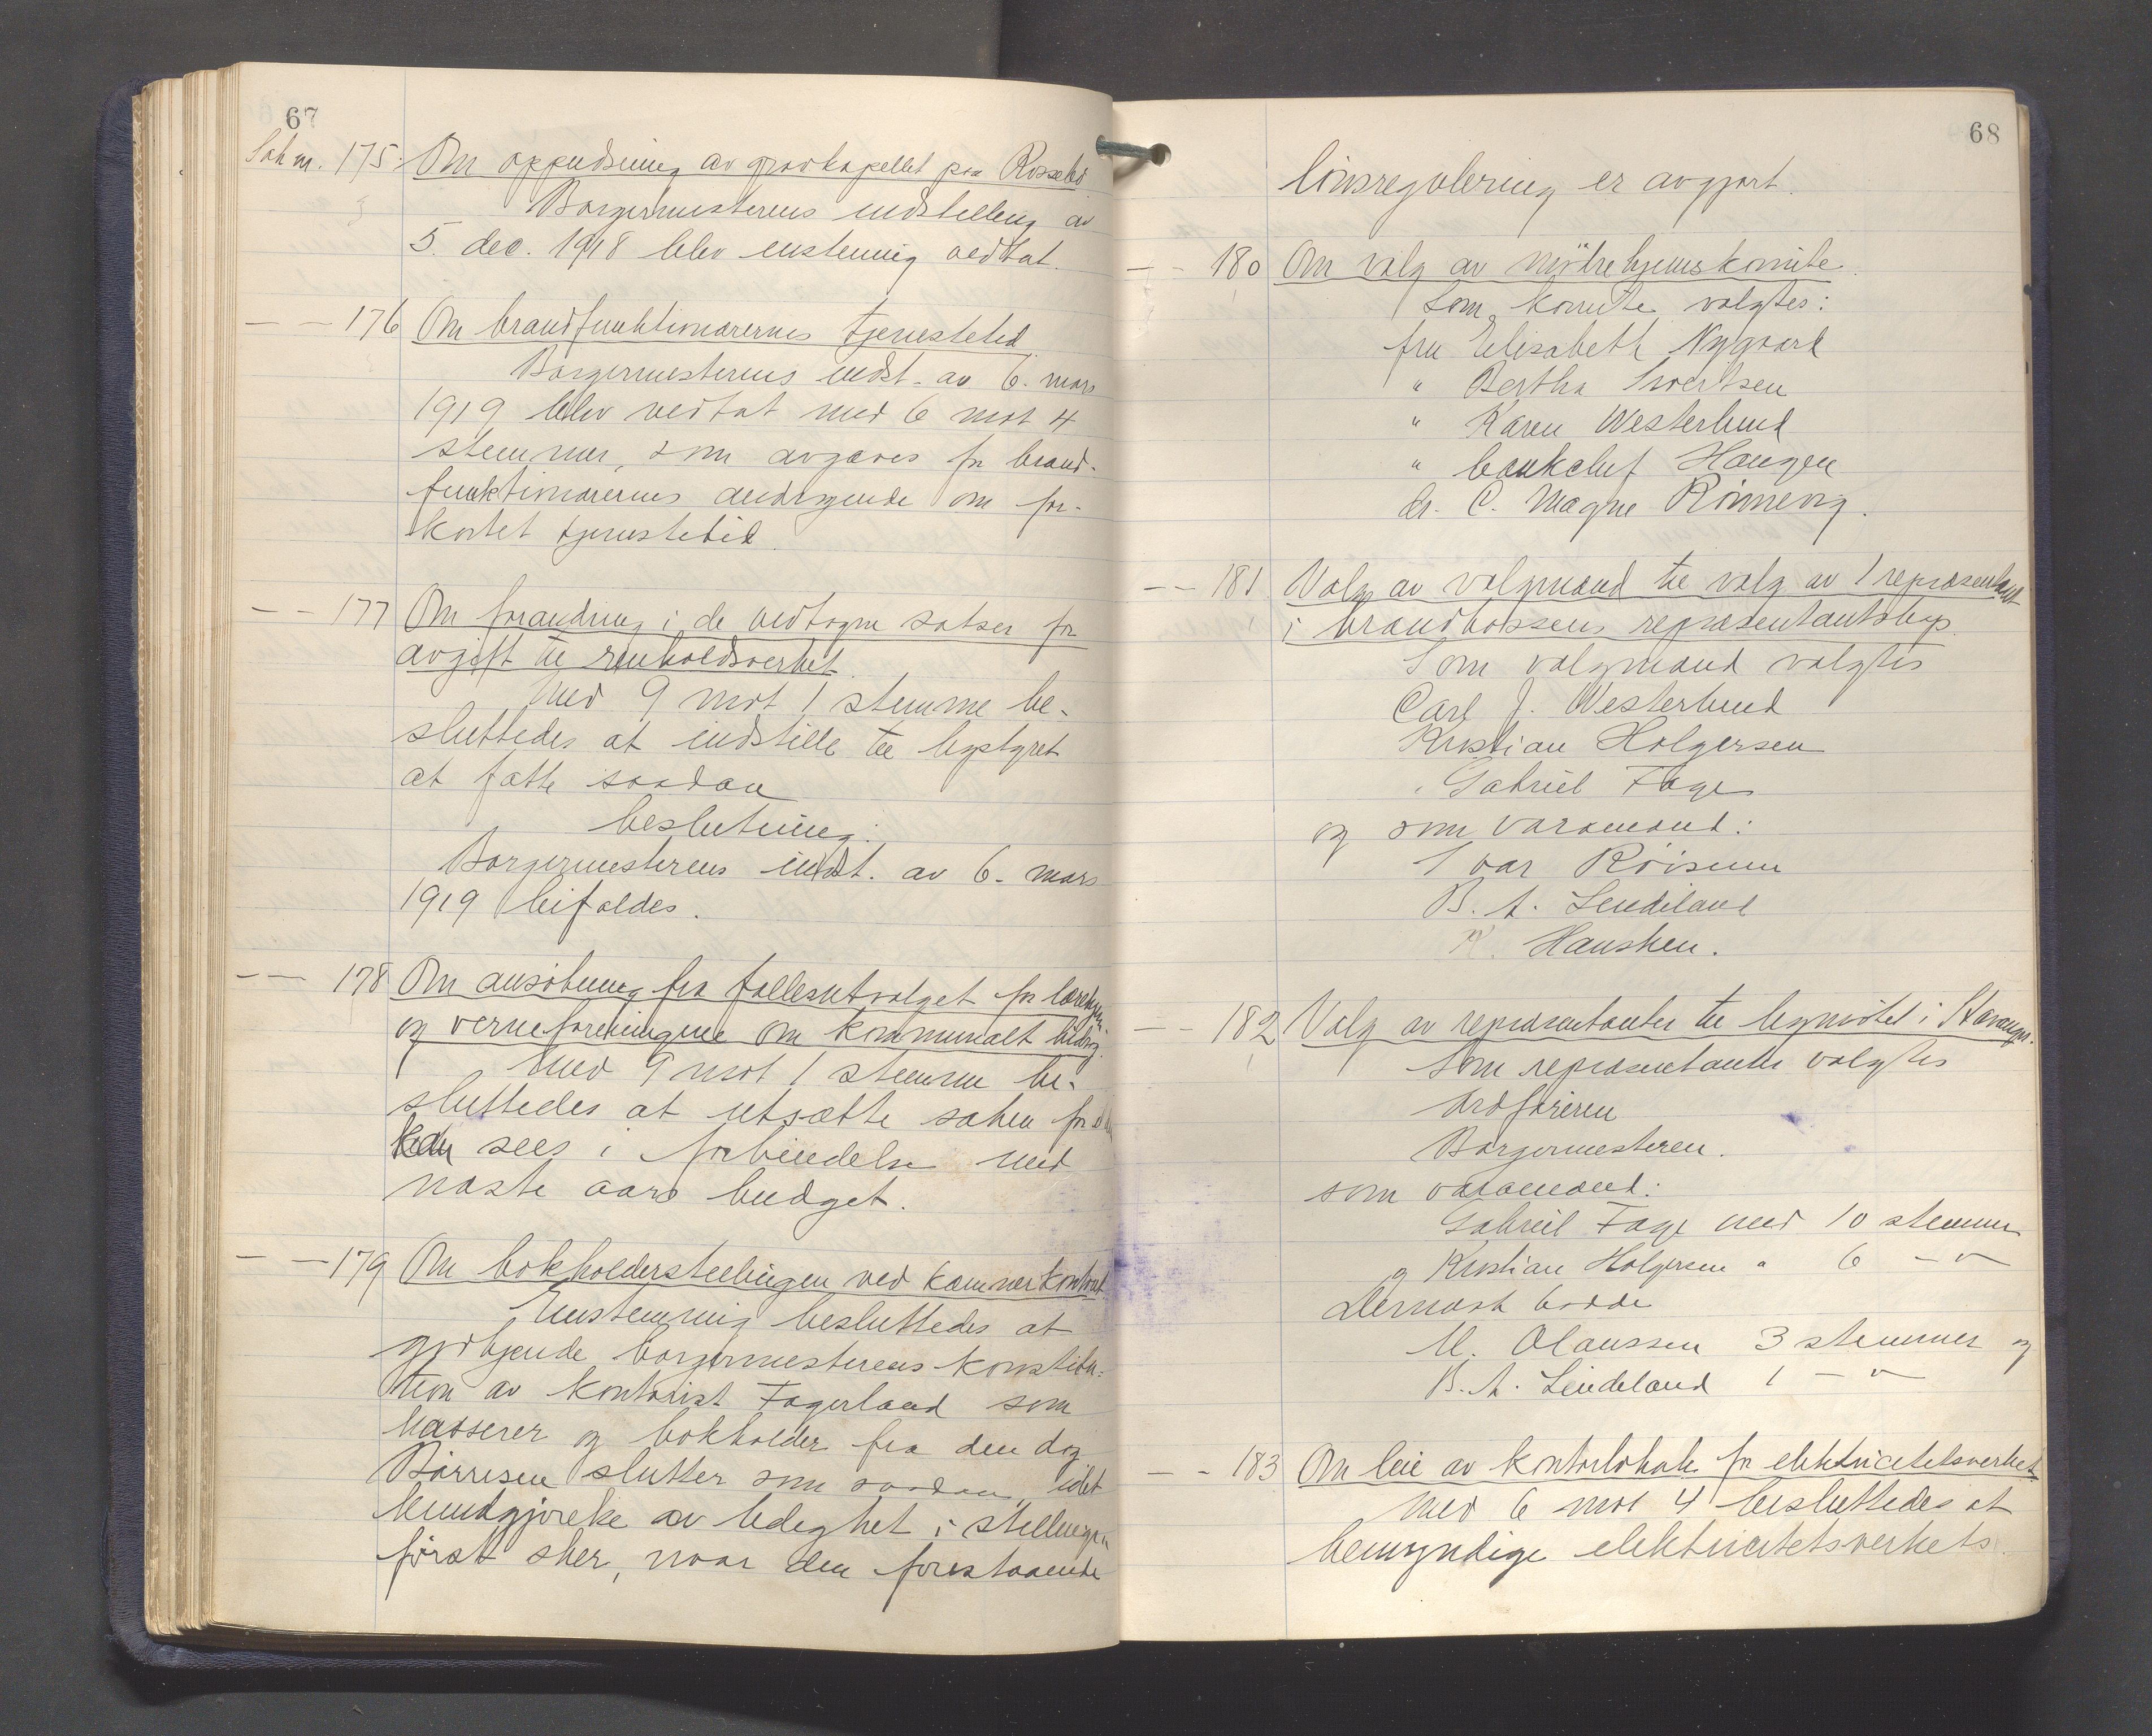 67
Sak nr. 175. Om oppudsning av gravkapellet paa Rossebø
Borgermesterens indstilling av
5. dec. 1918 blev enstemmig vedtat.
— — 176 Om brandfunktionærernes tjenestetid.
Borgermesterens indst. av 6. mars
1919 blev vedtat med 6 mot 4
stemmer, som avgaves for brand-
funktionærernes andragende om for-
kortet tjenestetid.
— — 177 Om forandring i de vedtagne satser for
avgift til renholdsverket.
Med 9 mot 1 stemme be-
sluttedes at indstille til bystyret
at fatte saadan
beslutning:
Borgermesterens indst. av 6. mars
1919 bifaldes.
— — 178 Om ansøkning fra fællesutvalget for
og verneforeningene om kommunalt bidrag.
Med 9 mot 1 stemme be-
sluttedes at utsætte saken for at den
kan sees i forbindelse med
næste aars budget.
— — 179 Om bokholderstillingen ved kæmnerkontoret.
Enstemmig besluttedes at
godkjende borgermesterens konstitu-
tion av kontorist Fagerland som
kasserer og bokholder fra den dag
Børresen slutter som saadan, idet
kundgjørelse av ledighet i stillingen
først sker, naar den forestaaende
68
lønsregulering er avgjort.
— - 180 Om valg av mødrehjemskomite.
Som komite valgtes:
fru Elisabeth Nygaard
" Bertha Sivertsen
" Karen Westerlund
" bankchef Haugen
dr. C. Magne Rönnevig.
— — 181 Valg av valgmænd til valg av 1 repræsentant
i brandkassens repræsentantskap.
Som valgmænd valgtes
Carl J. Westerlund
Kristian Holgersen
Gabriel Fage
og som varamænd:
Ivar Röisum
B. A. Lindeland
K. Hausken.
— — 182 Valg av repræsentanter til bymøtet i Stavanger.
Som repræsentanter valgtes
Ordføreren
Borgermesteren.
som varamænd:
Gabriel Fage med 10 stemmer
og Kristian Holgersen " 6 — " —
Dernæst hadde
M. Olaussen 3 stemmer og
B. A. Lindeland 1 — " —
— - 183 Om leie av kontorlokale for elektricitetsverket.
Med 6 mot 4 besluttedes at
bemyndige elektricitetsverkets